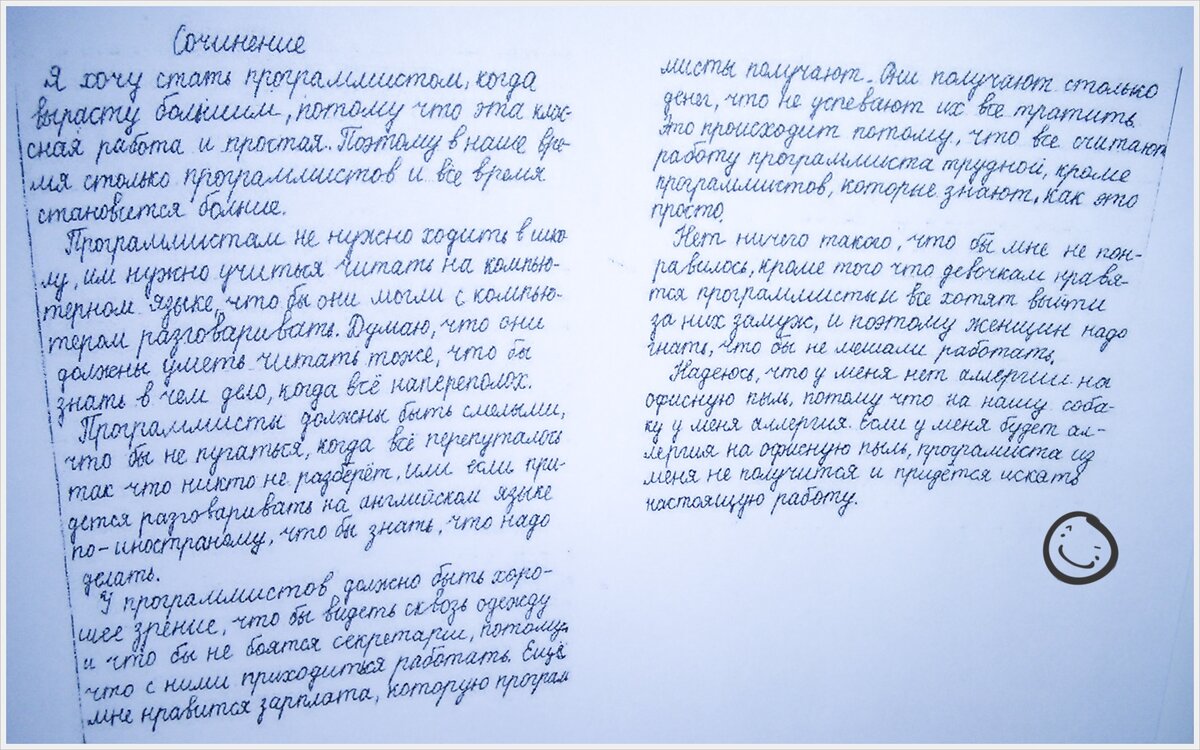 Сочинение
Я хочу стать программистом, когда
вырасту большим, потому что эта клас-
сная работа и простая. Поэтому в наше вре-
мя столько программистов и всё время
становится больше.
Программистам не нужно ходить в шко-
лу, им нужно учиться читать на компью-
терном языке, что бы они могли с компью-
тером разговаривать. Думаю, что они
должны уметь читать тоже, что бы
знать в чем дело, когда всё напереполох.
Программисты должны быть смелыми,
что бы не пугаться, когда всё перепуталось
так что никто не разберёт, или если при-
дется разговаривать на английском языке
по-иностраному, что бы знать, что надо
делать.
У программистов должно быть хоро-
шее зрение, что бы видеть сквозь одежду
и что бы не боятся секретарш, потому,
что с ними приходиться работать. Ещё
мне нравится зарплата, которую програм
мисты получают. Они получают столько
денег, что не успевают их все тратить.
Это происходит потому, что все считают
работу программиста трудной, кроме
программистов, которые знают, как это
просто.
Нет ничего такого, что бы мне не пон-
равилось, кроме того что девочкам нравя-
тся программисты и все хотят выйти
за них замуж, и поэтому женщин надо
гнать, что бы не мешали работать.
Надеюсь, что у меня нет аллергии на
офисную пыль, потому что на нашу соба-
ку у меня аллергия. Если у меня будет ал-
лергия на офисную пыль, програмиста из
меня не получится и придётся искать
настоящую работу.